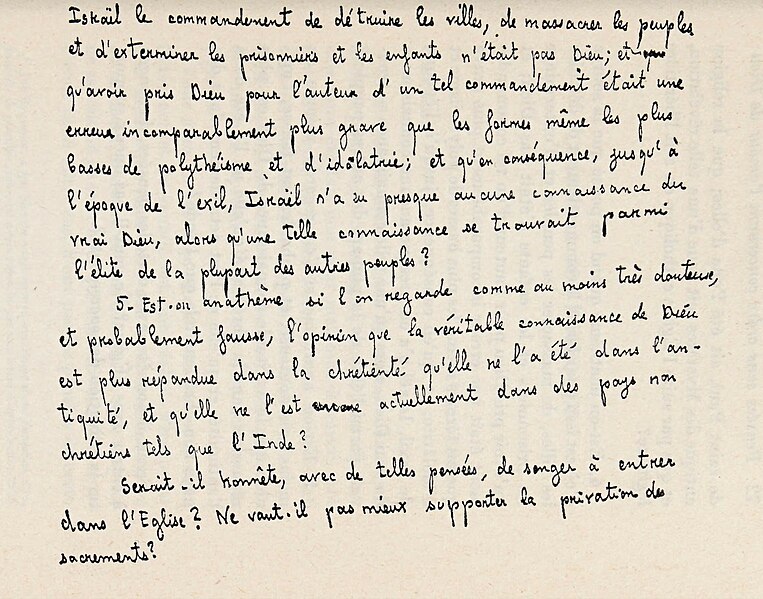 Iskaël le commandement de détruire les villes, de massacrer les peuples
et d'exterminer les prisonniers et les enfants n'était pas Dieu; et que
qu'avoir pris Dieu pour l'auteur d'un tel commandement était une
erreur incomparablement plus grave que les formes même les plus
basses de polythéisme et d'idolatrie; et qu'en conséquence, jusqu'à
l'époque de l'exil, Iskaël n'a eu presque aucune connaissance du
vrai Dieu, alors qu'une telle connaissance se trouvait parmi
l'élite de la plupart des autres peuples?
5- Est-on anathème si l'on regarde comme au moins très douteuse,
et probablement fausse, l'opinion que la véritable connaissance de Dieu
est plus répandue dans la chrétienté qu'elle ne l'a été dans l'an-
tiquité, et qu'elle ne l'est encore actuellement dans des pays non
chrétiens tels que l'Inde?
Serait-il honnête, avec de telles pensées, de songer à entrer
dans l'Eglise? Ne vaut-il pas mieux supporter la privation des
sacrements?